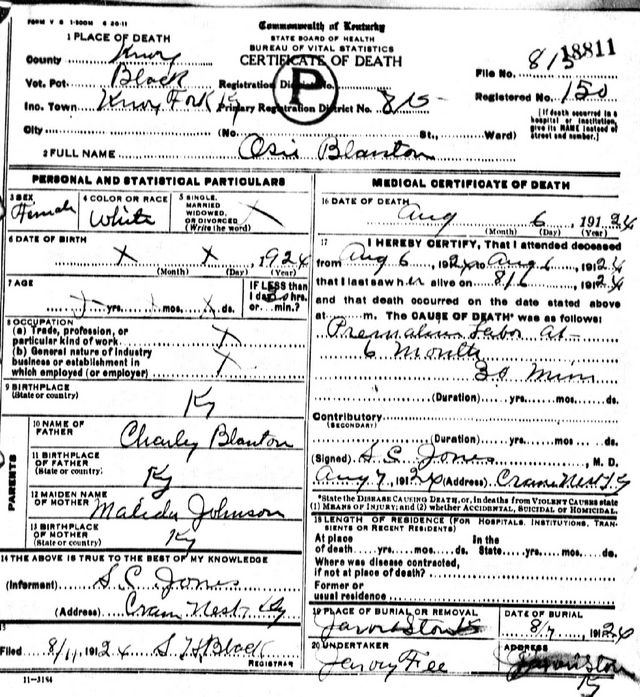 FORM V S 1-300M 6 20-11
Commonwealth of Kentucky
STATE BOARD OF HEALTH
BUREAU OF VITAL STATISTICS
CERTIFICATE OF DEATH
1 PLACE OF DEATH
County Knox
Vot. Pct. Black
Inc. Town Knox Fork Ky
City (No. St., Ward)
Registration District No.
Primary Registration District No. 815
P
815 18811
File No.
Registered No. 150
[If death occurred in a hospital or institution, give its NAME instead of street and number.]
2 FULL NAME Osie Blanton
PERSONAL AND STATISTICAL PARTICULARS
3 SEX Female
4 COLOR OR RACE White
5 SINGLE, MARRIED WIDOWED, OR DIVORCED (Write the word) X
6 DATE OF BIRTH X X 1924
(Month) (Day) (Year)
7 AGE
yrs. mos. ds.
IF LESS than 1 day hrs. or min.?
8 OCCUPATION
(a) Trade, profession, or particular kind of work X
(b) General nature of industry business or establishment in which employed (or employer) X
9 BIRTHPLACE
(State or country) Ky
PARENTS
10 NAME OF FATHER Charley Blanton
11 BIRTHPLACE OF FATHER
(State or country) Ky
12 MAIDEN NAME OF MOTHER Malida Johnson
13 BIRTHPLACE OF MOTHER
(State or country) Ky
14 THE ABOVE IS TRUE TO THE BEST OF MY KNOWLEDGE
(Informant) S. C. Jones
(Address) Crane Nest Ky
15
Filed 8/11, 1924 S. H. Black
REGISTRAR
11-3184
MEDICAL CERTIFICATE OF DEATH
16 DATE OF DEATH Aug 6, 1924
(Month) (Day) (Year)
17 I HEREBY CERTIFY, That I attended deceased
from Aug 6, 1924 to Aug 6, 1924
that I last saw her alive on 8/6, 1924
and that death occurred on the date stated above
at m. The CAUSE OF DEATH* was as follows:
Labor at
6 Months
30 Min
(Duration) yrs. mos. ds.
Contributory
(SECONDARY)
(Duration) yrs. mos. ds.
(Signed) S. C. Jones, M. D.
Aug 7, 1924 (Address) Crane Nest Ky
*State the DISEASE CAUSING DEATH, or, in deaths from VIOLENT CAUSES state (1) MEANS OF INJURY; and (2) whether ACCIDENTAL, SUICIDAL or HOMICIDAL.
18 LENGTH OF RESIDENCE (FOR HOSPITALS, INSTITUTIONS, TRANSIENTS OR RECENT RESIDENTS)
At place of death yrs. mos. ds. In the State yrs. mos. ds.
Where was disease contracted, if not at place of death?
Former or usual residence
19 PLACE OF BURIAL OR REMOVAL
DATE OF BURIAL
8/7, 1924
20 UNDERTAKER
ADDRESS
Ky